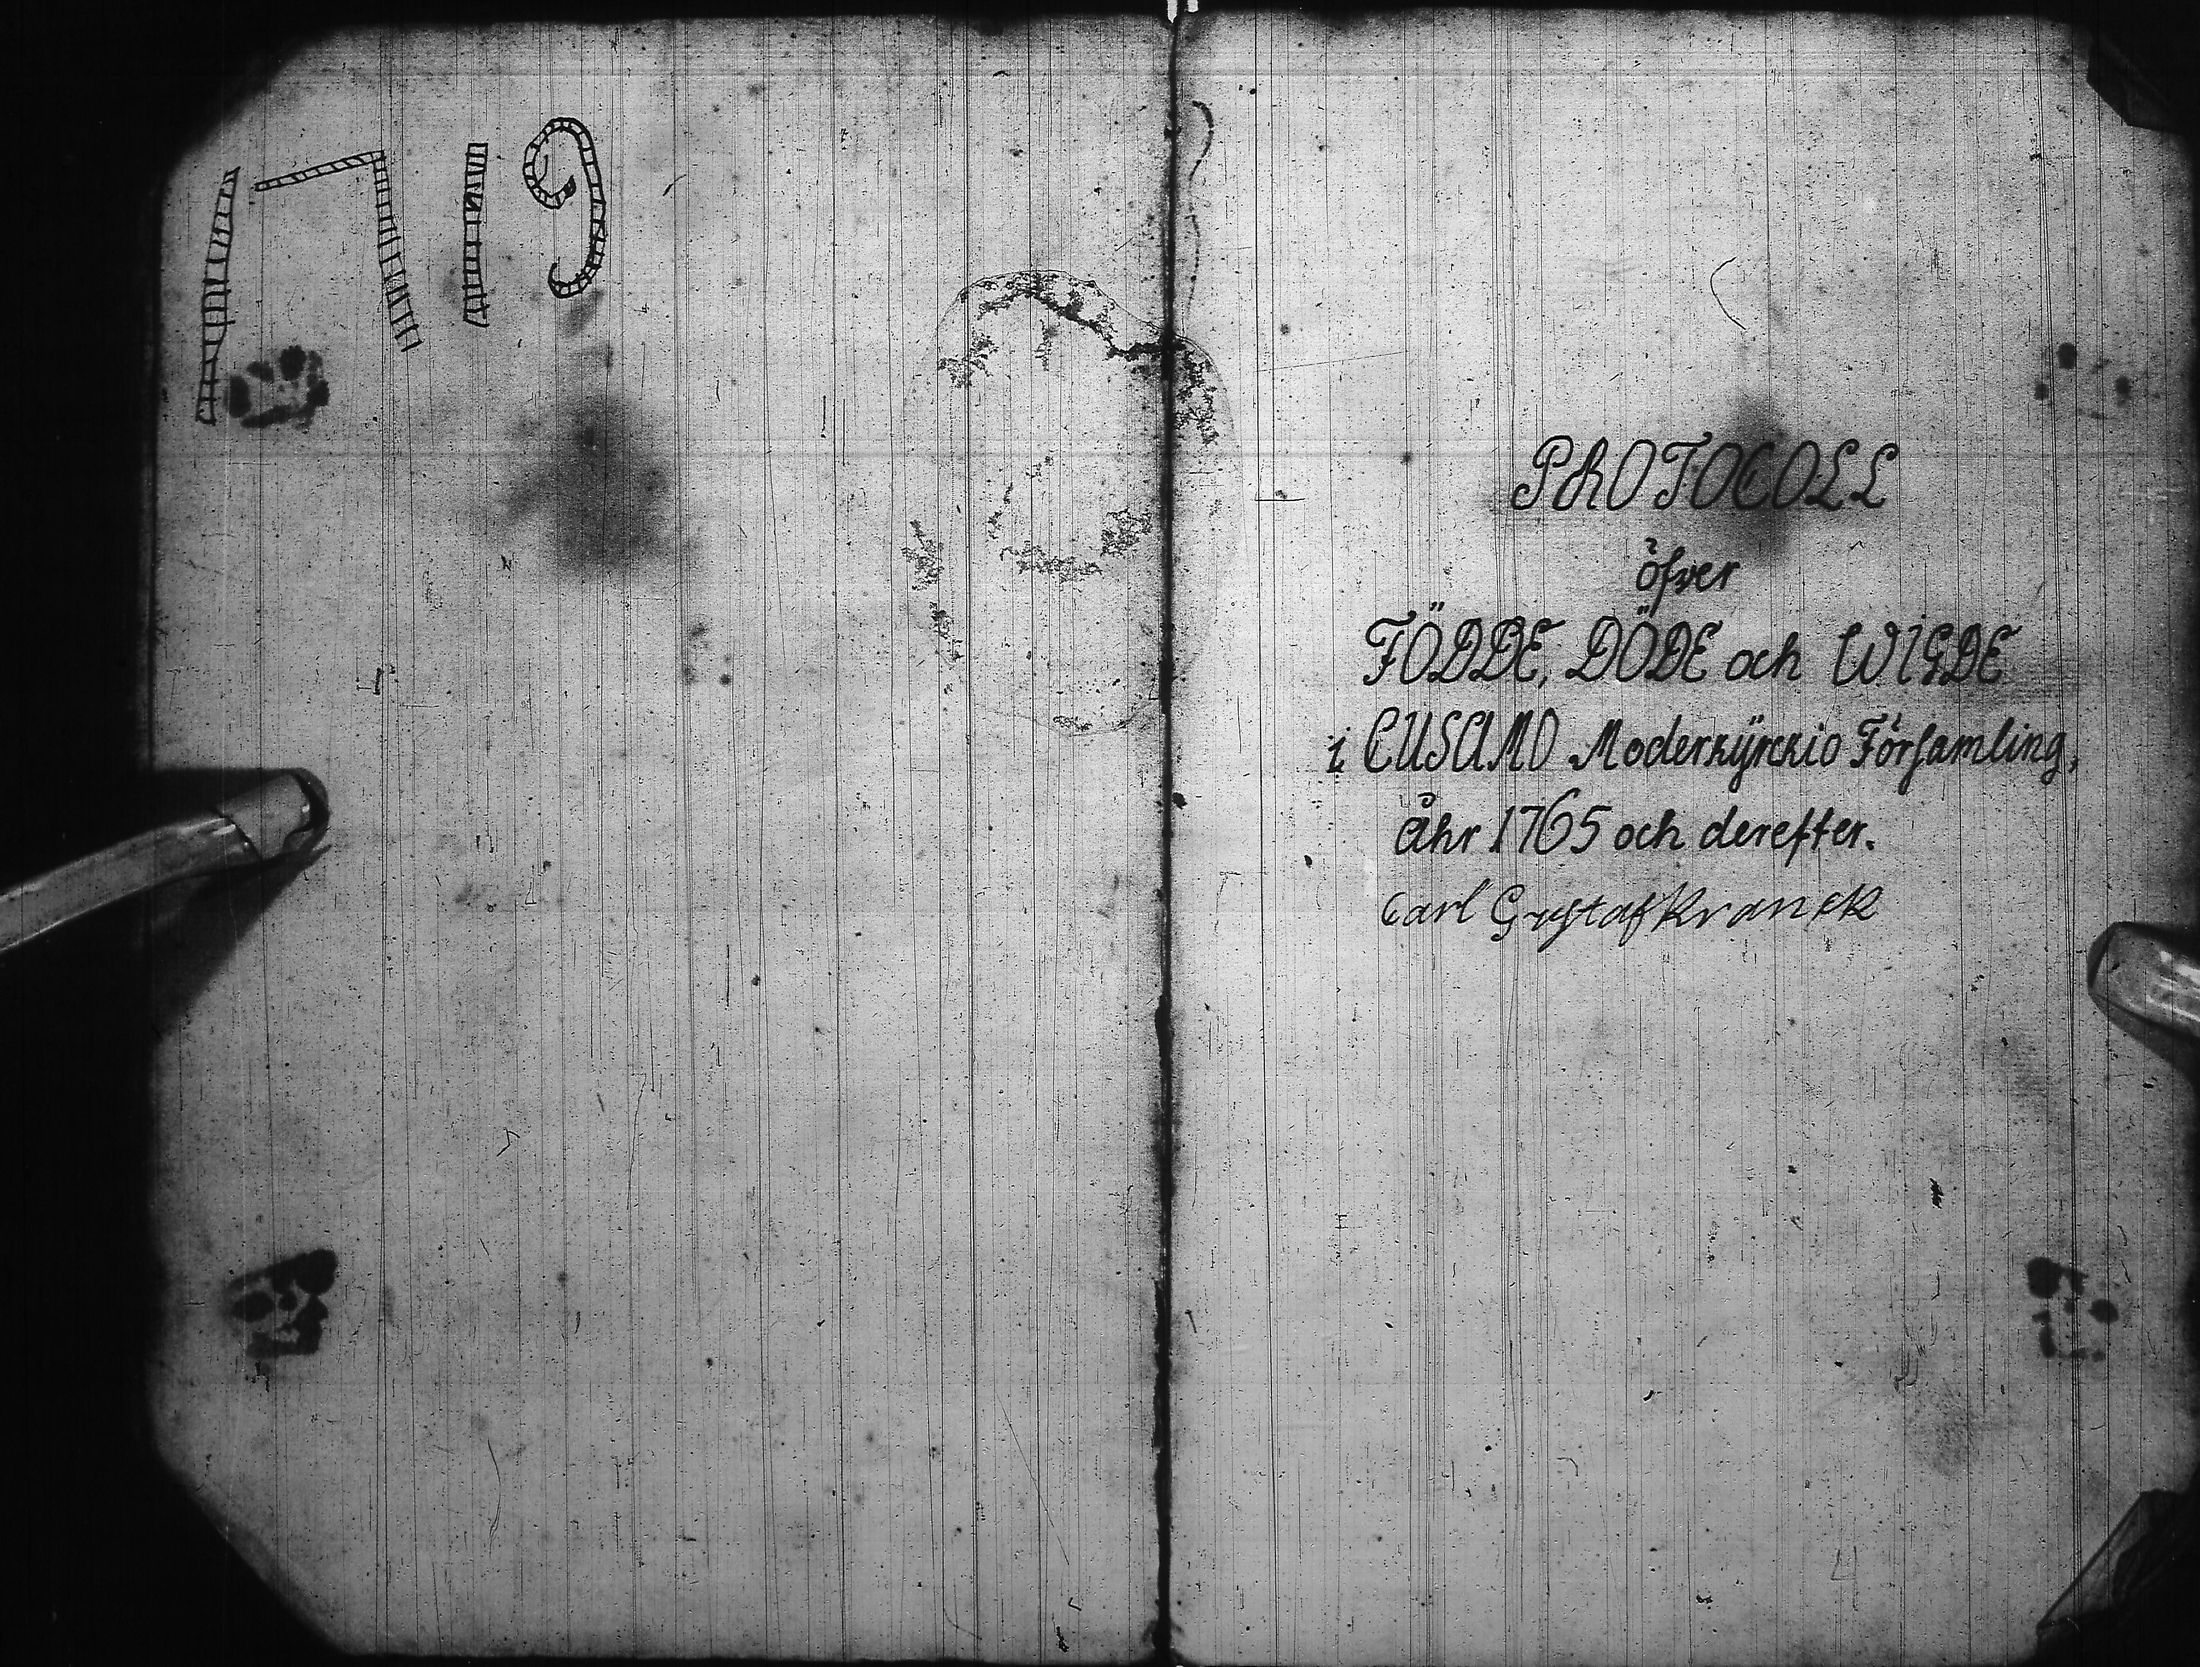 1719
PROTOCOLL
öfver
FÖDDE, DÖDE och WIGDE
i CUSAMO Moderkÿrckio Församling,
åhr 1765 och derefter.
Carl Gustaf Kranck